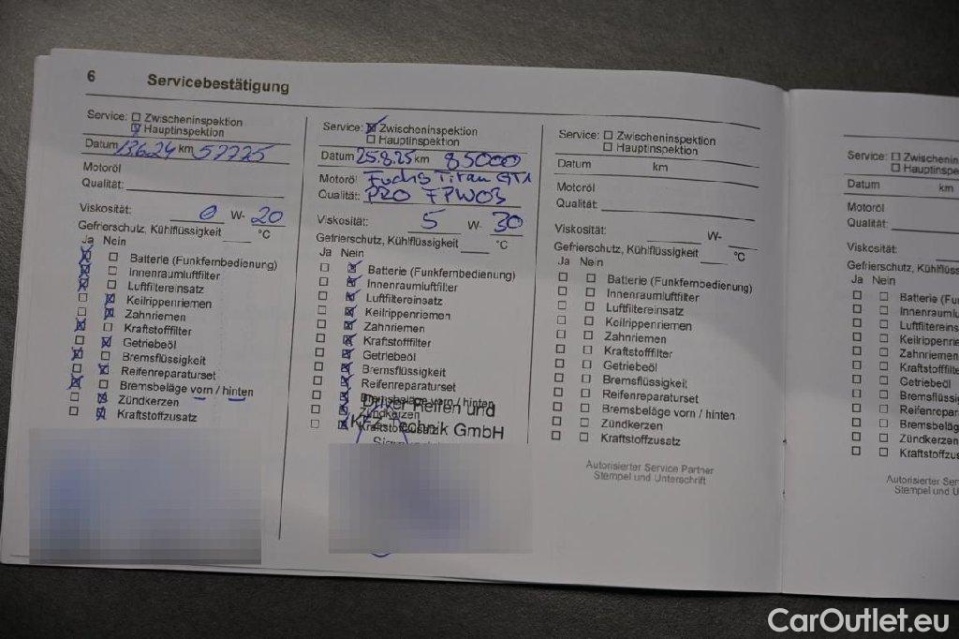 6 Servicebestätigung
Service: Zwischeninspektion
Hauptinspektion
Datum 13.6.24 km 57775
Motoröl
Qualität:
Viskosität: 0 W- 20
Gefrierschutz, Kühlflüssigkeit °C
Ja Nein
Batterie (Funkfernbedienung)
Innenraumluftfilter
Luftfiltereinsatz
Keilrippenriemen
Zahnriemen
Kraftstofffilter
Getriebeöl
Bremsflüssigkeit
Reifenreparaturset
Bremsbeläge vorn / hinten
Zündkerzen
Kraftstoffzusatz
Service: Zwischeninspektion
Hauptinspektion
Datum 25.8.25 km 85000
Motoröl Fuchs Titan GT1
Qualität: PRO
Viskosität: 5 W- 30
Gefrierschutz, Kühlflüssigkeit °C
Ja Nein
Batterie (Funkfernbedienung)
Innenraumluftfilter
Luftfiltereinsatz
Keilrippenriemen
Zahnriemen
Kraftstofffilter
Getriebeöl
Bremsflüssigkeit
Reifenreparaturset
Bremsbeläge vorn / hinten
Driver Reifen und
Zündkerzen
KFZ-Technik GmbH
Kraftstoffzusatz
Service: Zwischeninspektion
Hauptinspektion
Datum km
Motoröl
Qualität:
Viskosität: W-
Gefrierschutz, Kühlflüssigkeit °C
Ja Nein
Batterie (Funkfernbedienung)
Innenraumluftfilter
Luftfiltereinsatz
Keilrippenriemen
Zahnriemen
Kraftstofffilter
Getriebeöl
Bremsflüssigkeit
Reifenreparaturset
Bremsbeläge vorn / hinten
Zündkerzen
Kraftstoffzusatz
Autorisierter Service Partner
Stempel und Unterschrift
Service: Zwischenin
Hauptinspe
Datum km
Motoröl
Qualität:
Viskosität:
Gefrierschutz, Kühlflüss
Ja Nein
Batterie (Fu
Innenraumlu
Luftfiltereins
Keilrippenrie
Zahnriemen
Kraftstofffilte
Getriebeöl
Bremsflüssig
Reifenrepar
Bremsbeläg
Zündkerzen
Kraftstoffzus
Autorisierter Ser
Stempel und U
CarOutlet.eu